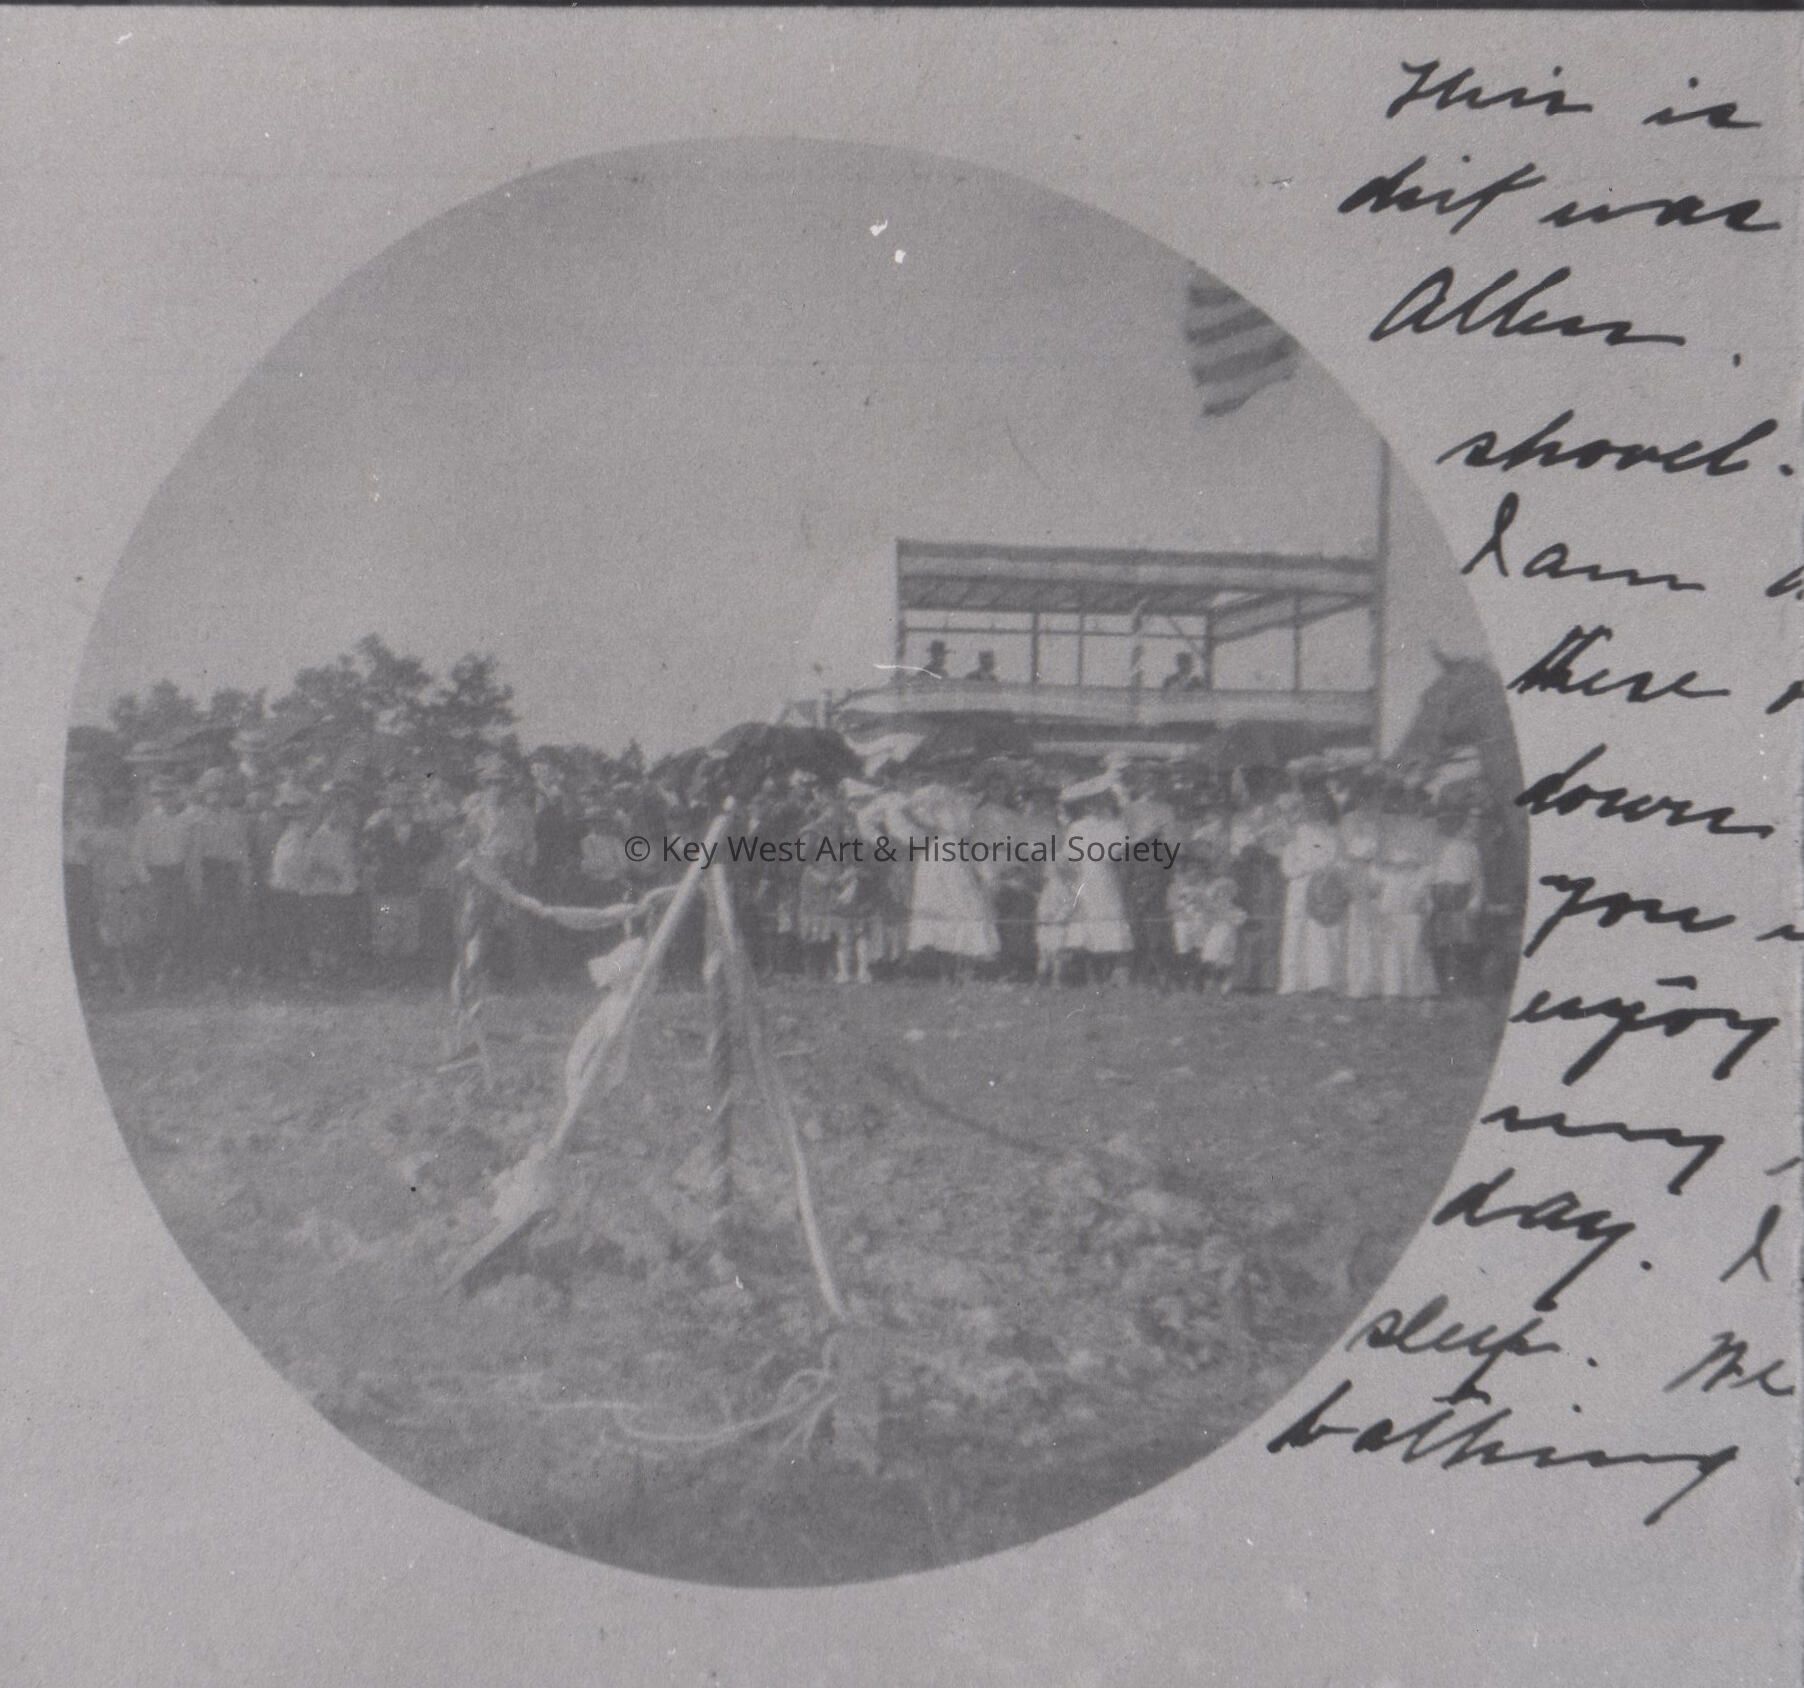 This is
dirt was
Allen.
shovel.
I am
these
down
you
enjoy
my
day. I
sleep. We
bathing
© Key West Art & Historical Society